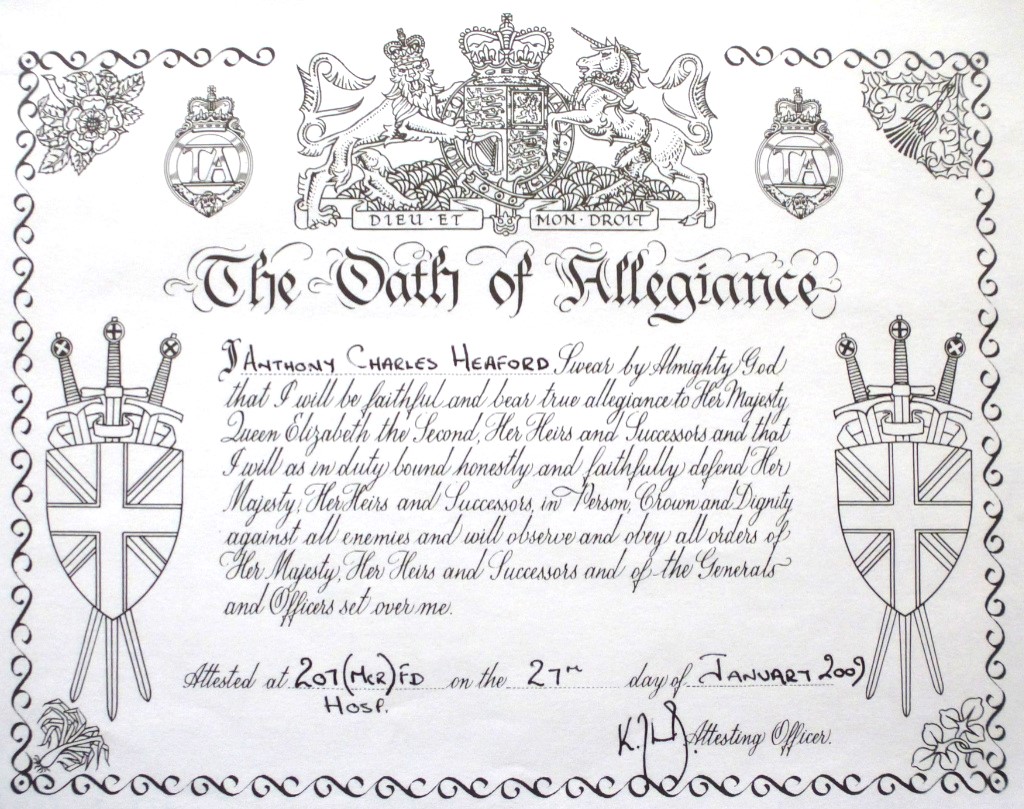 TA
TA
DIEU · ET MON · DROIT
The Oath of Allegiance
I ANTHONY CHARLES HEAFORD Swear by Almighty God
that I will be faithful and bear true allegiance to Her Majesty
Queen Elizabeth the Second, Her Heirs and Successors and that
I will as in duty bound honestly and faithfully defend Her
Majesty, Her Heirs and Successors, in Person, Crown and Dignity
against all enemies and will observe and obey all orders of
Her Majesty, Her Heirs and Successors and of the Generals
and Officers set over me.
Attested at 207 (MCR) FD on the 27TH day of JANUARY 2009
HOSP.
Attesting Officer.